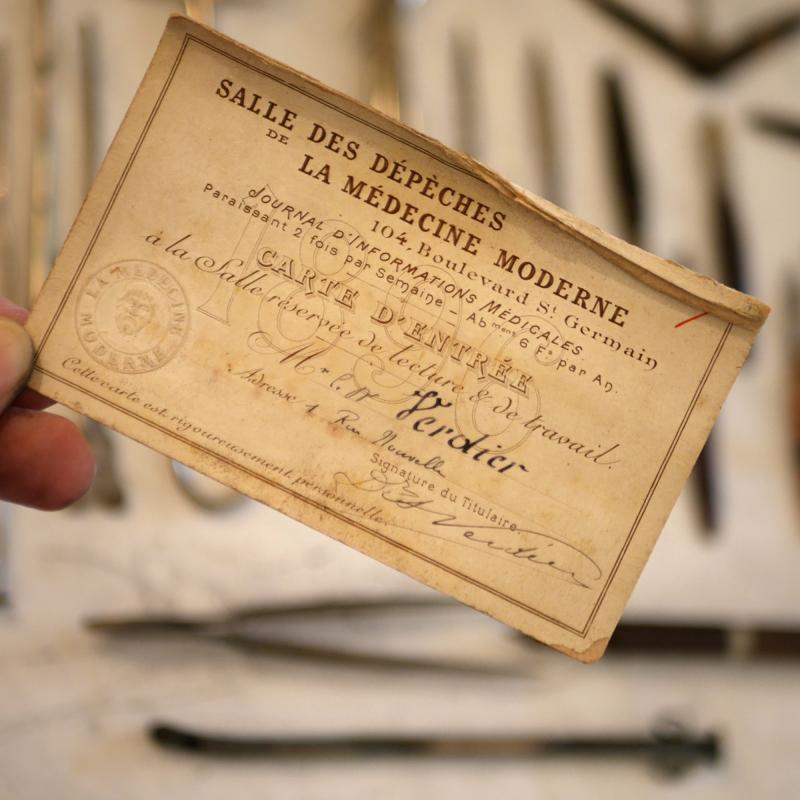 SALLE DES DÉPÈCHES
DE
LA MÉDECINE MODERNE
104, Boulevard St Germain
JOURNAL D'INFORMATIONS MÉDICALES
Paraissant 2 fois par Semaine - Abment 6 Fr. par An.
1896
CARTE D'ENTRÉE
à la Salle réservée de lecture & de travail.
LA MEDECINE MODERNE
Mr Verdier
Adresse 1 Rue Nouvelle
Signature du Titulaire.
Verdier
Cette carte est rigoureusement personnelle.